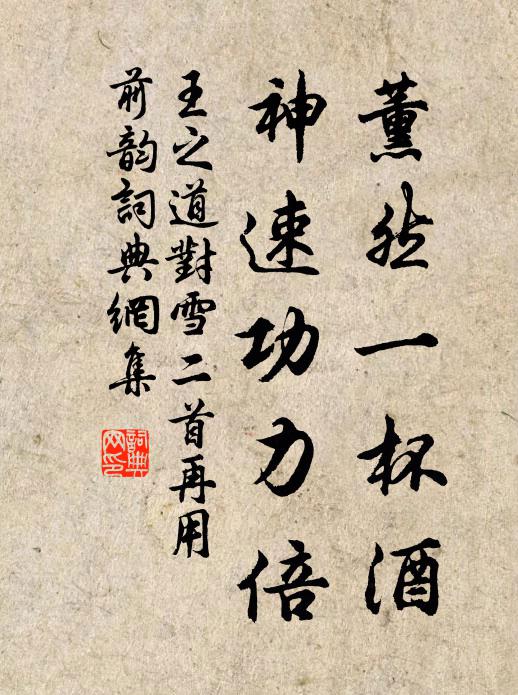 薰然一杯酒
神速功力倍
王之道對雪二首再用
前韵詞典網集
詞典网印